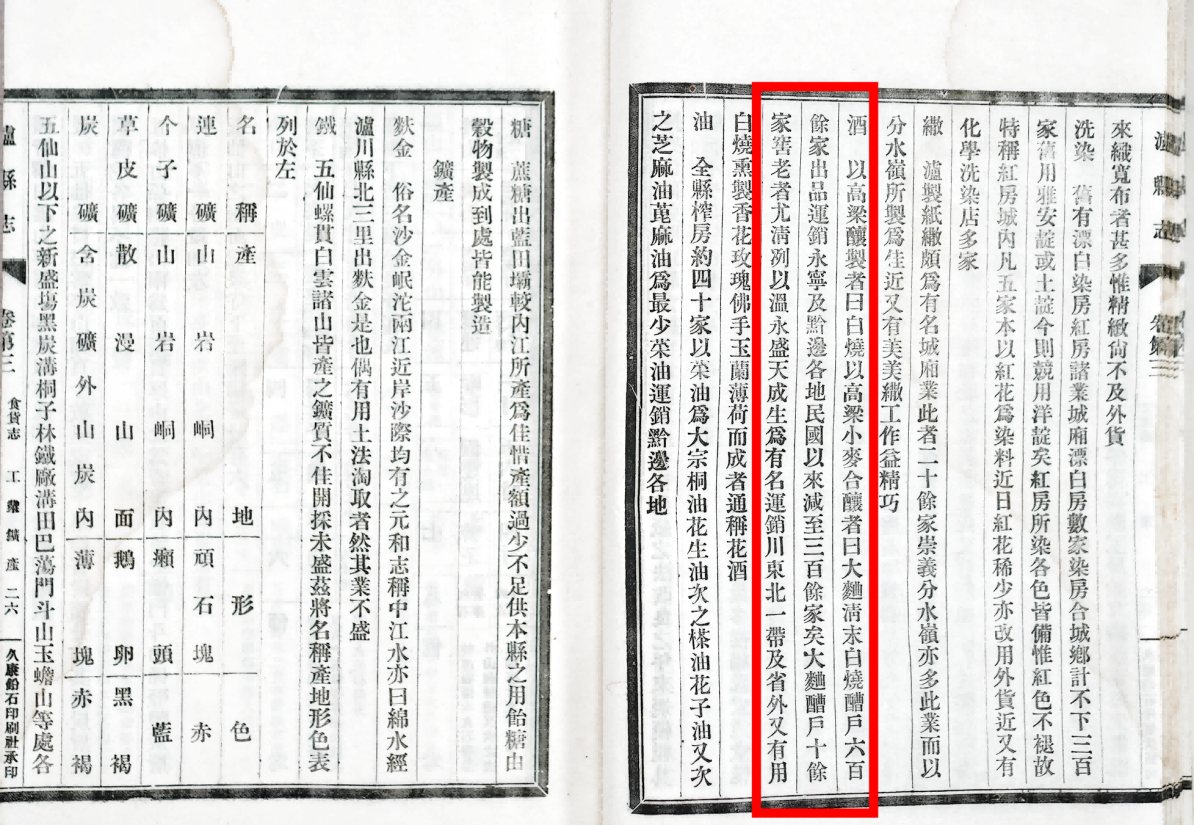 瀘縣志
卷第三
來織寬布者甚多惟精緻尙不及外貨
洗染 舊有漂白染房紅房諸業城廂漂白房數家染房合城鄉計不下三百
家舊用雅安靛或土靛今則競用洋靛矣紅房所染各色皆備惟紅色不褪故
特稱紅房城內凡五家本以紅花爲染料近日紅花稀少亦改用外貨近又有
化學洗染店多家
繖 瀘製紙繖頗爲有名城廂業此者二十餘家崇義分水嶺亦多此業而以
分水嶺所製爲佳近又有美美繖工作益精巧
酒 以高粱釀製者曰白燒以高粱小麥合釀者曰大麯淸末白燒醩戶六百
餘家出品運銷永寧及黔邊各地民國以來減至三百餘家矣大麯醩戶十餘
家窖老者尤淸冽以溫永盛天成生爲有名運銷川東北一帶及省外又有用
白燒熏製香花玫瑰佛手玉蘭薄荷而成者通稱花酒
油 全縣榨房約四十家以菜油爲大宗桐油花生油次之榛油花子油又次
之芝麻油蓖麻油爲最少菜油運銷黔邊各地
糖 蔗糖出藍田壩較內江所產爲佳惜產額過少不足供本縣之用飴糖由
穀物製成到處皆能製造
鑛產
麩金 俗名沙金岷沱兩江近岸沙際均有之元和志稱中江水亦曰綿水經
瀘川縣北三里出麩金是也偶有用土法淘取者然其業不盛
鐵 五仙螺貫白雲諸山皆產之鑛質不佳開採未盛茲將名稱產地形色表
列於左
名稱 產地 形色
連礦 山岩峒內 頑石塊赤
个子礦 山岩峒內 癩頭藍
草皮礦 散漫山面 鵝卵黑褐
炭礦 含炭礦外山炭內 薄塊赤褐
五仙山以下之新盛塲黑炭溝桐子林鐵廠溝田巴蕩門斗山玉蟾山等處各
瀘縣志
卷第三 食貨志 工業 鑛產 二六
久康鉛石印刷社承印